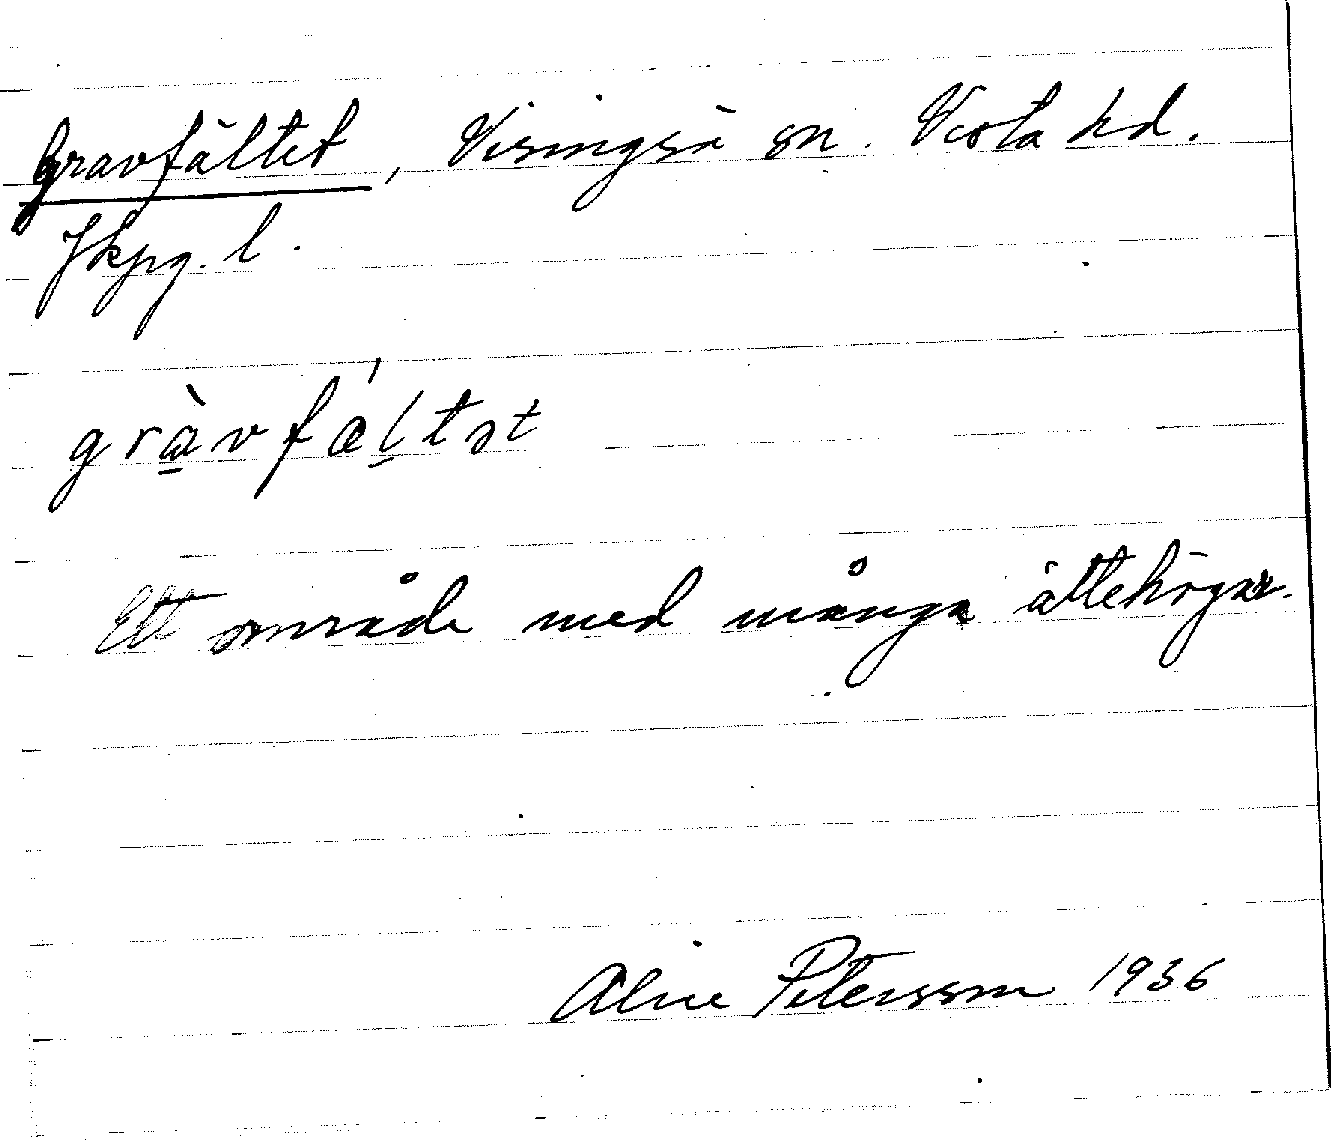 Gravfältet, Visingsö sn. Vista hd.
Jkpg. l.
gràvfæ̀ltət
Ett område med många ättehögar.
Aline Petersson 1936